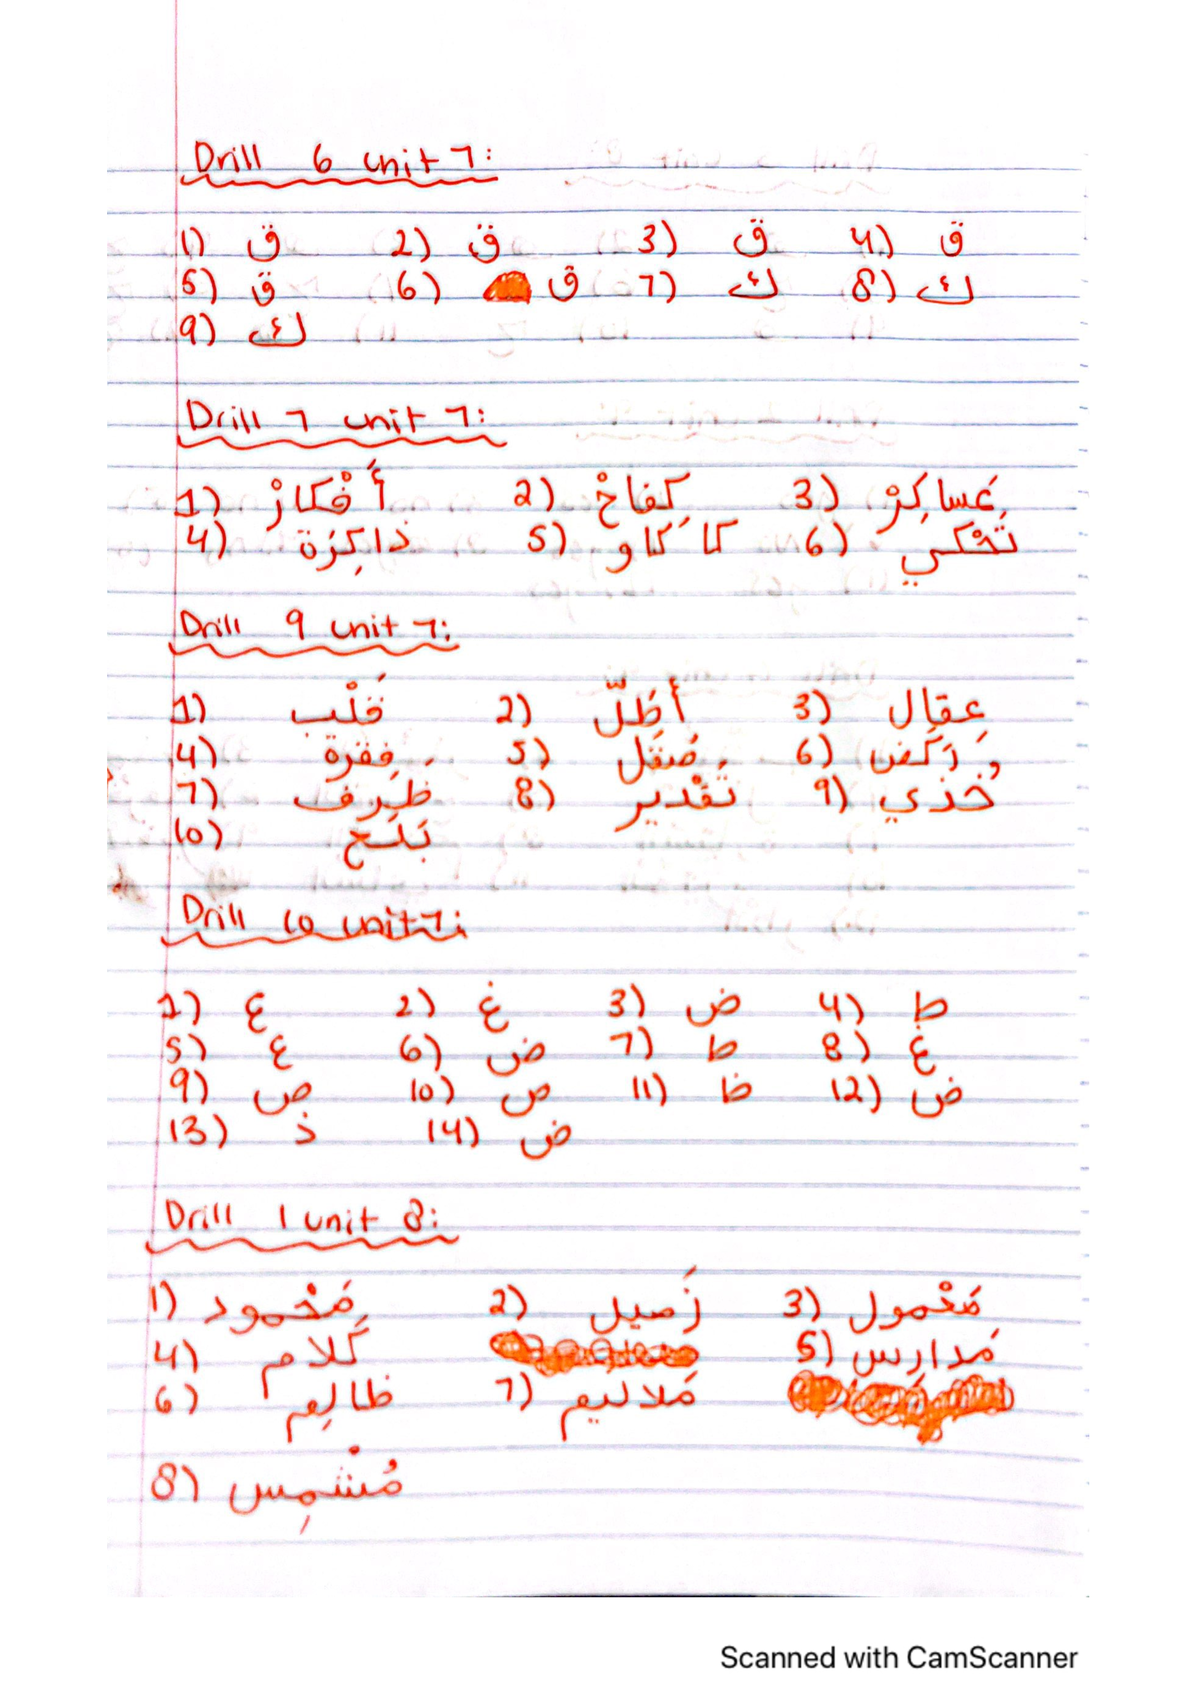 Drill 6 unit 7:
1) ق 2) ق 3) ق 4) ق
5) ق 6) ق 7) ك 8) ك
9) ك
Drill 7 unit 7:
1) أَفْكارْ 2) كِفاحْ 3) عَساكِرْ
4) ذاكِرَة 5) كاكاو 6) تَحْكي
Drill 9 unit 7:
1) قَلْب 2) أَظَلّ 3) عِقال
4) فِقرة 5) صَقَل 6) رَكَض
7) ظَرف 8) تَقْدير 9) خُذي
10) بَلَح
Drill 10 unit 7:
1) ع 2) غ 3) ض 4) ط
5) ع 6) ض 7) ط 8) غ
9) ص 10) ص 11) ظ 12) ض
13) ذ 14) ض
Drill 1 unit 8:
1) مَحْمود 2) زَميل 3) مَعْمول
4) كَلام 5) مَدارِس
6) ظالِم 7) مَلاليم
8) مُشْمِس
Scanned with CamScanner